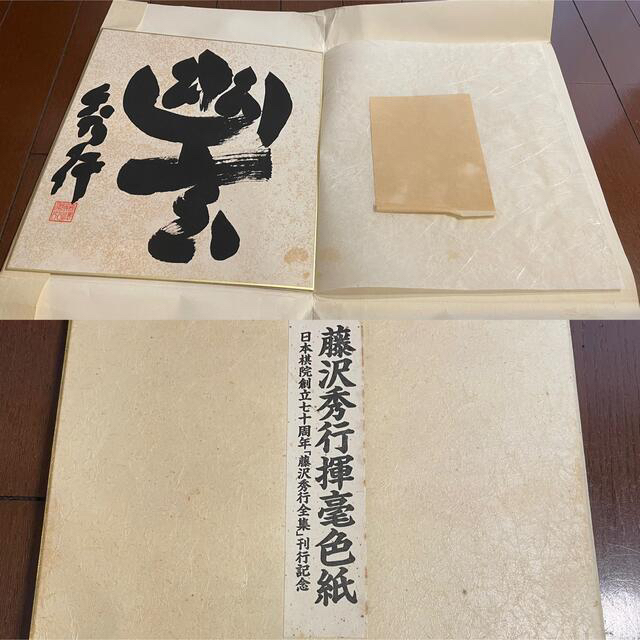 秀行
藤沢秀行揮毫色紙
日本棋院創立七十周年「藤沢秀行全集」刊行記念